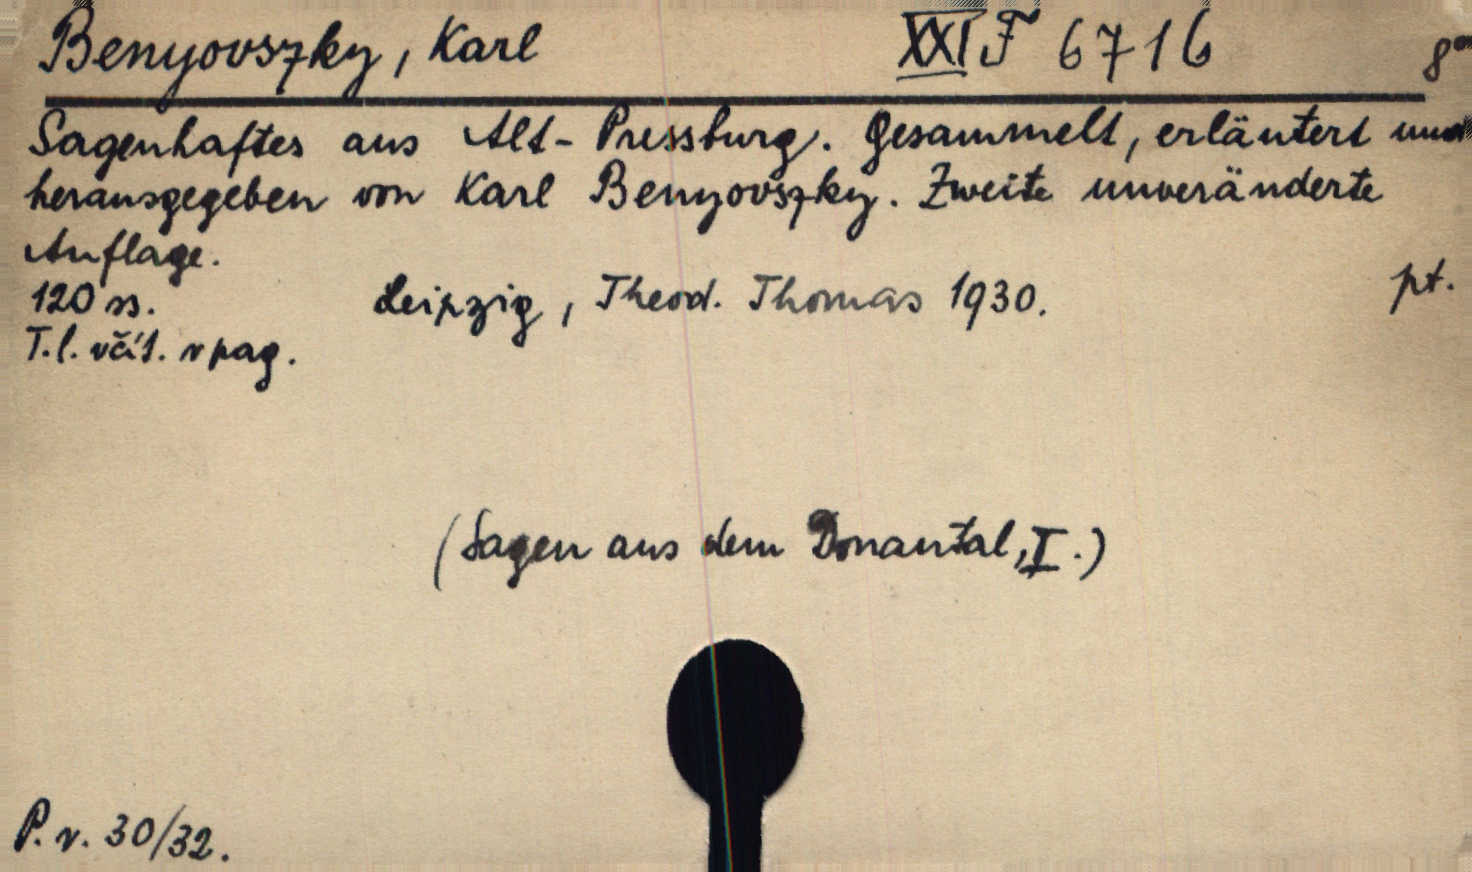 Benyovszky, Karl XXI F 6716 8°
Sagenhaftes aus Alt-Pressburg. Gesammelt, erläutert und
herausgegeben von Karl Benyovszky. Zweite unveränderte
Auflage.
120 ss. Leipzig, Theod. Thomas 1930. pt.
T.l. včít. v pag.
(Sagen aus dem Donautal, I.)
P. v. 30/32.